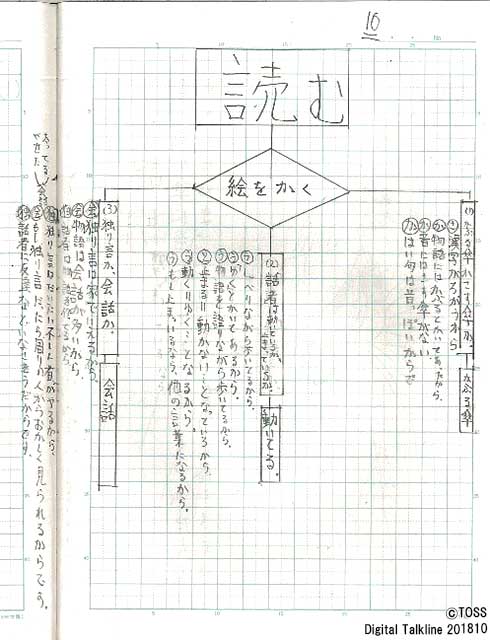 10
読む
絵をかく
(1)かぶる傘かさす傘か。
かぶる傘
か漢字がちがうから
か物語にはかぶるとかいてあったから。
か昔にはさす傘がない
かはい句は昔っぽいからで
(2)話者は動いているか、止まっているか。
動いてる。
うしゃべりながら歩いてるから。
うゆくとかいてあるから。
う物語を語りながら歩いてるから。
う止まる=動かない…となっているから。
う動く=ゆく…となるから。
うもし止まっているなら、他の言葉になるから。
(3)独り言か、会話か。
会話
会独り言は家でいえるから。
会物語は会話が多いから。
会話者は物語を
会独り言はだいたい不
会もし独り言だったら周りの人からおかしく見られるからです。
会話者に友達がなく
©TOSS
Digital Talkline 201810